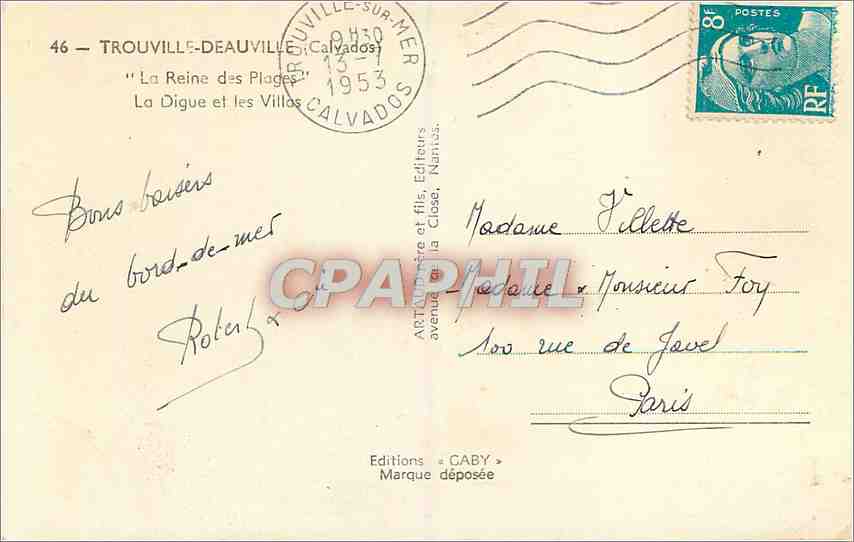 46 — TROUVILLE-DEAUVILLE (Calvados)
" La Reine des Plages "
La Digue et les Villas
TROUVILLE-SUR-MER
9H30
13-1
1953
CALVADOS
8F
POSTES
RF
Bons baisers
du bord-de-mer
Robert &
ARTAUD père et fils, Editeurs
avenue de la Close, Nantes.
CPAPHIL
Madame Villette
Madame & Monsieur Foy
100 rue de Javel
Paris
Editions « GABY »
Marque déposée